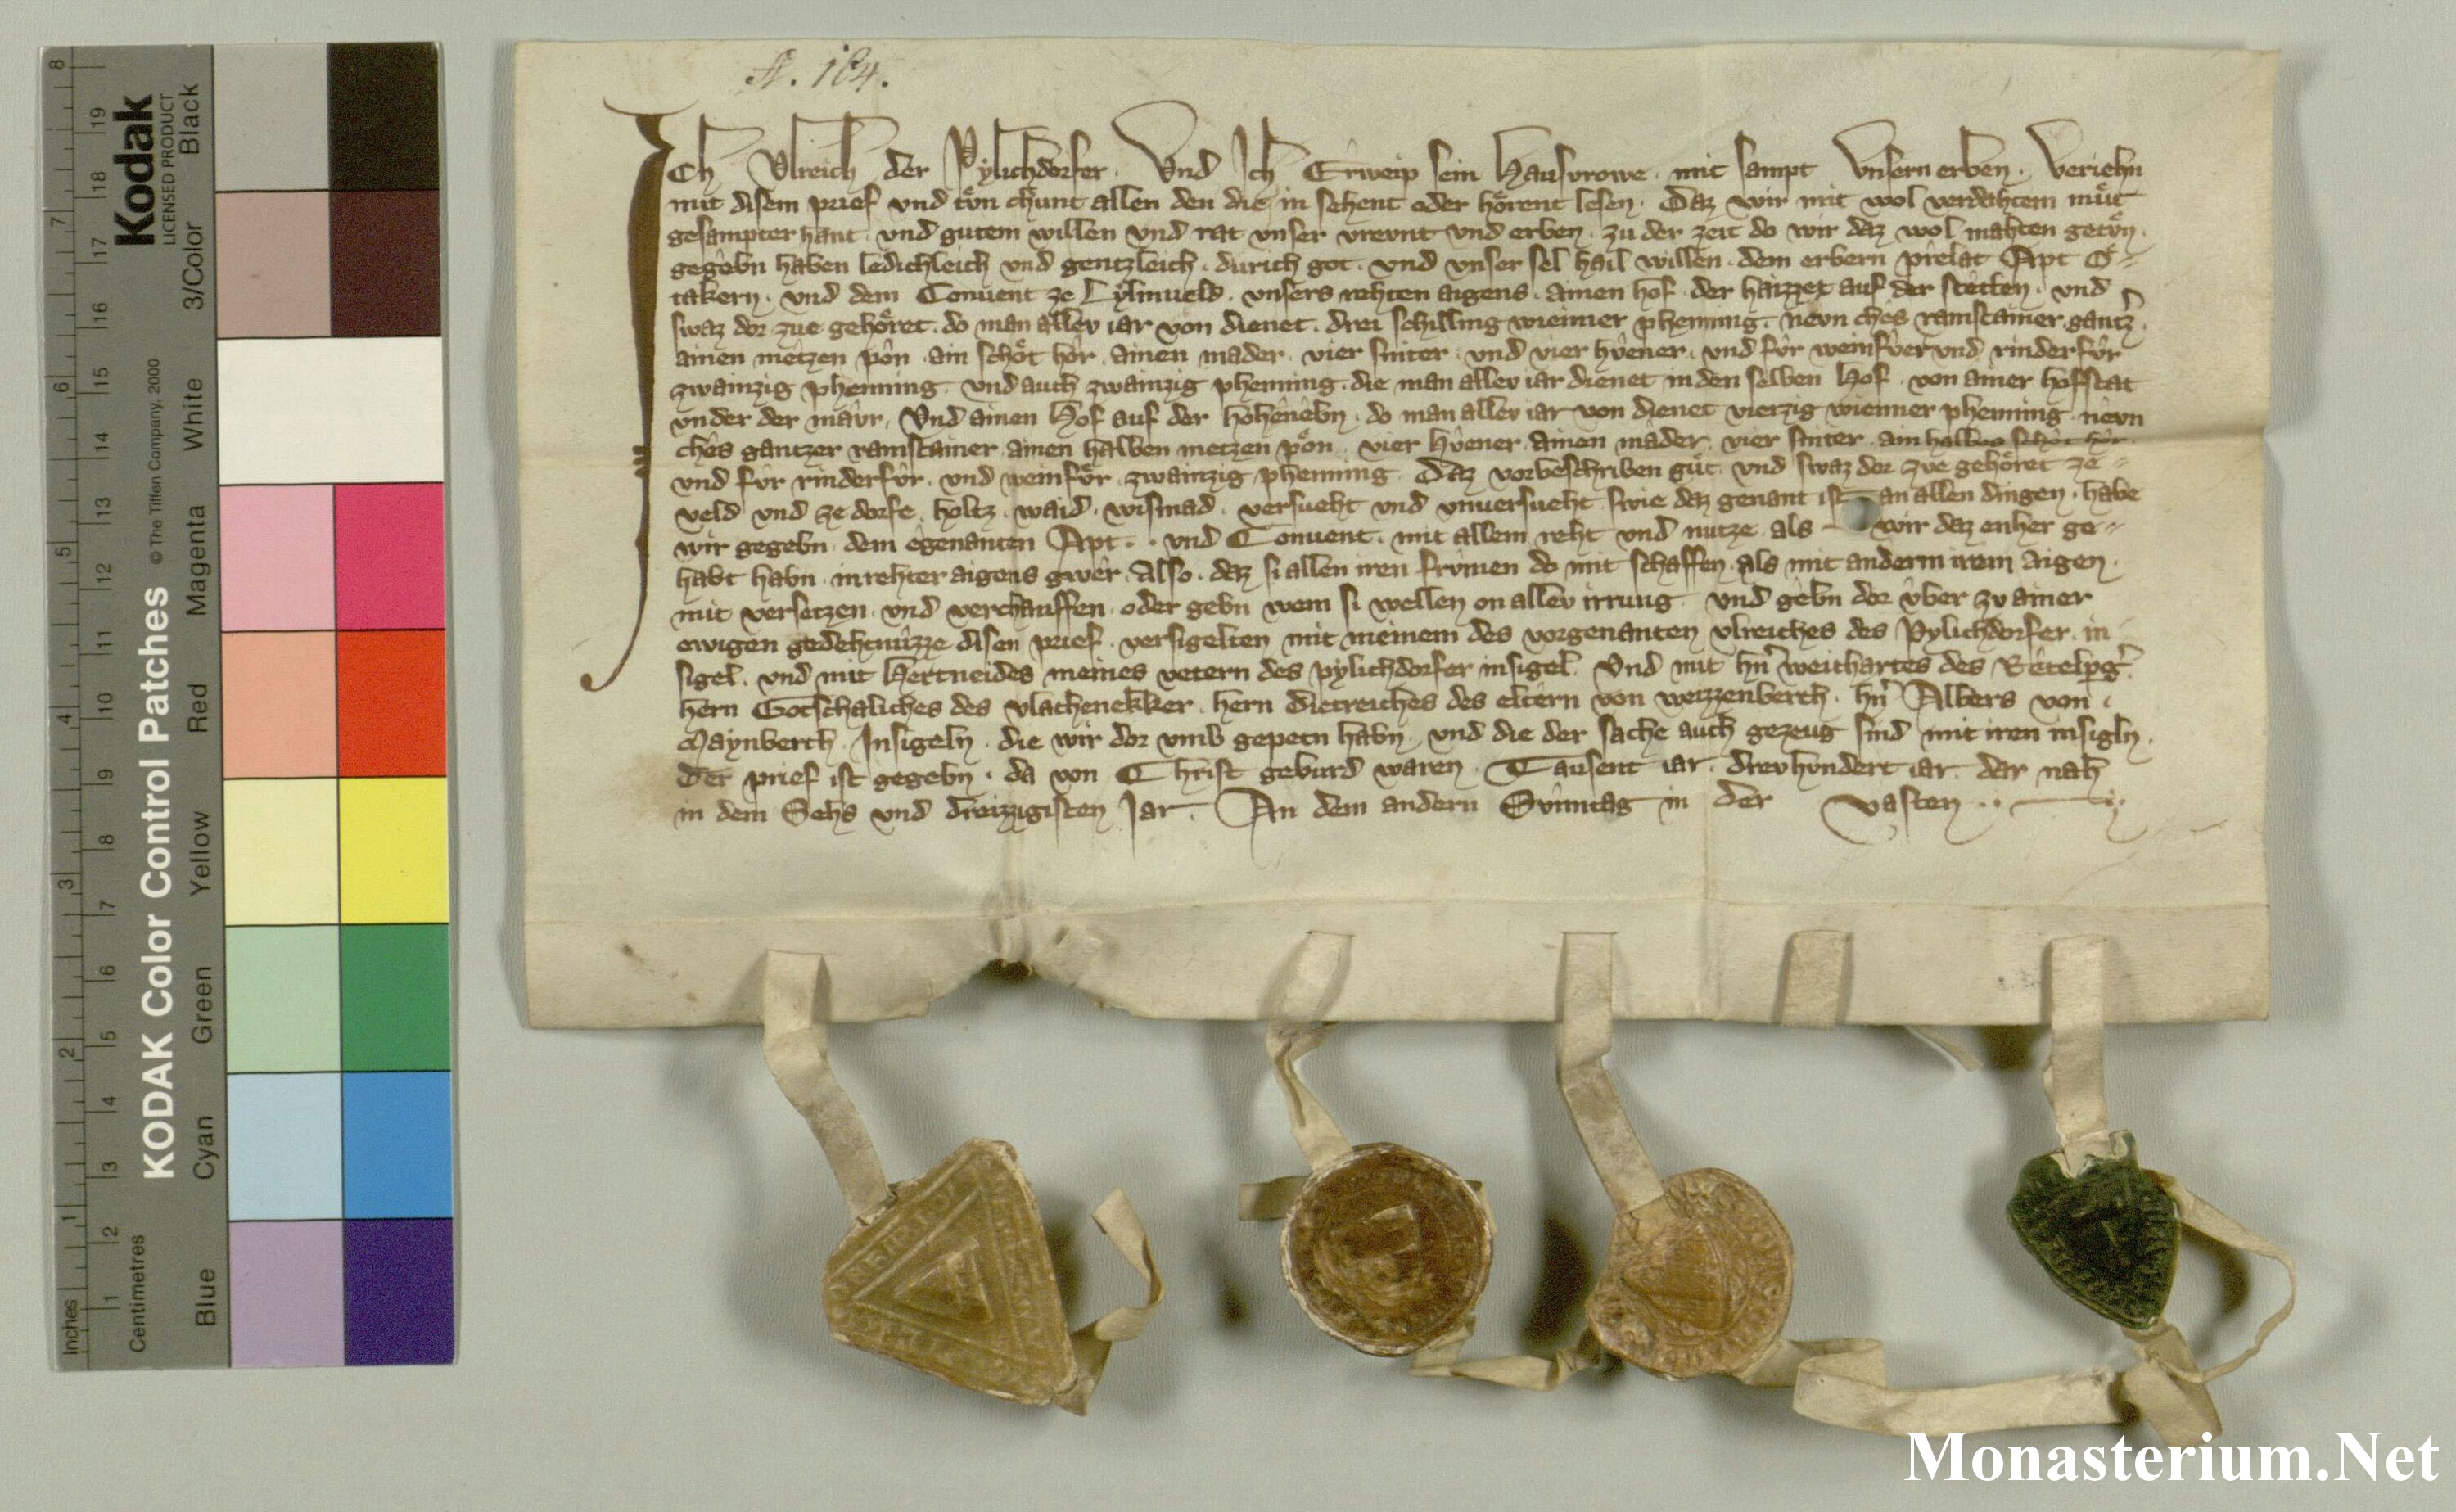 A. 184.
Ich Vlreich der Pylichdorfer. Vnd Ich Erweip sein Hausvrowe. mit sampt Vnsern erben. Veriehn
mit disem prief vnd tůn chunt allen den die in sehent oder hörent lesen. Daz wir mit wol verdahtem můt
gesampter hant. vnd gutem willen vnd rat vnser vrevnt vnd erben. zu der zeit do wir daz wol mahten getůn.
gegebn haben ledichleich vnd gentzleich. durich got. vnd vnser sel hail willen. dem erbern prelat Apt O⸗
takern. vnd dem Conuent ze Lylinueld. vnsers rehten aigens. ainen hof der haizzet auf der stetten. vnd
swaz dor zue gehöret. do man allev iar von dienet. drei schilling wienner phenning. nevn ches ramstainer gantz̾.
ainen metzen pon. ain schöt hor. ainen mader. vier sniter. vnd vier hůener. vnd für weinfůer vnd rinderfůr
zwainzig phenning. vnd auch zwainzig phenning. die man allev iar dienet in den selben Hof. von ainer hofstat
vnder der maur. Vnd ainen Hof auf der hohenebn. do man allev iar von dienet vierzig wienner phenning. nevn
ches gantzer ramstainer. ainen halben metzen pon. vier hůener. ainen mader. vier sniter. ain halbes schöt hor.
vnd für rinderfůr. vnd weinfůr. zwainzig phenning. Daz vorbeschriben gůt. vnd swaz dor zue gehöret ze⸗
veld vnd ze dorfe. holtz. waid. wismad. versueht vnd vnuersueht. swie daz genant ist an allen dingen. habe
wir gegebn. dem egenanten Apt.. vnd Conuent. mit allem reht vnd nutze. als wir daz enher ge⸗
habt habn. in rehter aigens gwer. Also. daz si allen iren frumen do mit schaffen. als mit anderm irem Aigen.
mit versetzen. vnd verchauffen. oder gebn wem si wellen on allev irrung. vnd gebn dor vber zu ainer
ewigen gedehtnüzze disen prief. versigelten mit meinem des vorgenanten vlreiches des Pylichdorfer. in⸗
sigel. vnd mit Hertneides meines vetern des pylichdorfer insigel. Vnd mit hn̾ weithartes des Retelpg̾.
hern Gotschaliches des vlachenekker. hern Dietreiches des eltern von weizzenberch. hn̾ Albers von
Maynberch. Insigeln. die wir dor vmb gepeten habn. vnd die der sache auch gezeug sind mit iren insigln.
Der prief ist gegebn. da von Christ geburd waren. Tausent iar. drevhvndert iar. dar nah
in dem Sehs vnd dreizzigisten Jar. An dem andern Svnntag in der Vasten..
KODAK Color Control Patches
© The Tiffen Company, 2000
Kodak
LICENSED PRODUCT
Inches
1 2 3 4 5 6 7 8
Centimetres
1 2 3 4 5 6 7 8 9 10 11 12 13 14 15 16 17 18 19
Blue
Cyan
Green
Yellow
Red
Magenta
White
3/Color
Black
Monasterium.Net